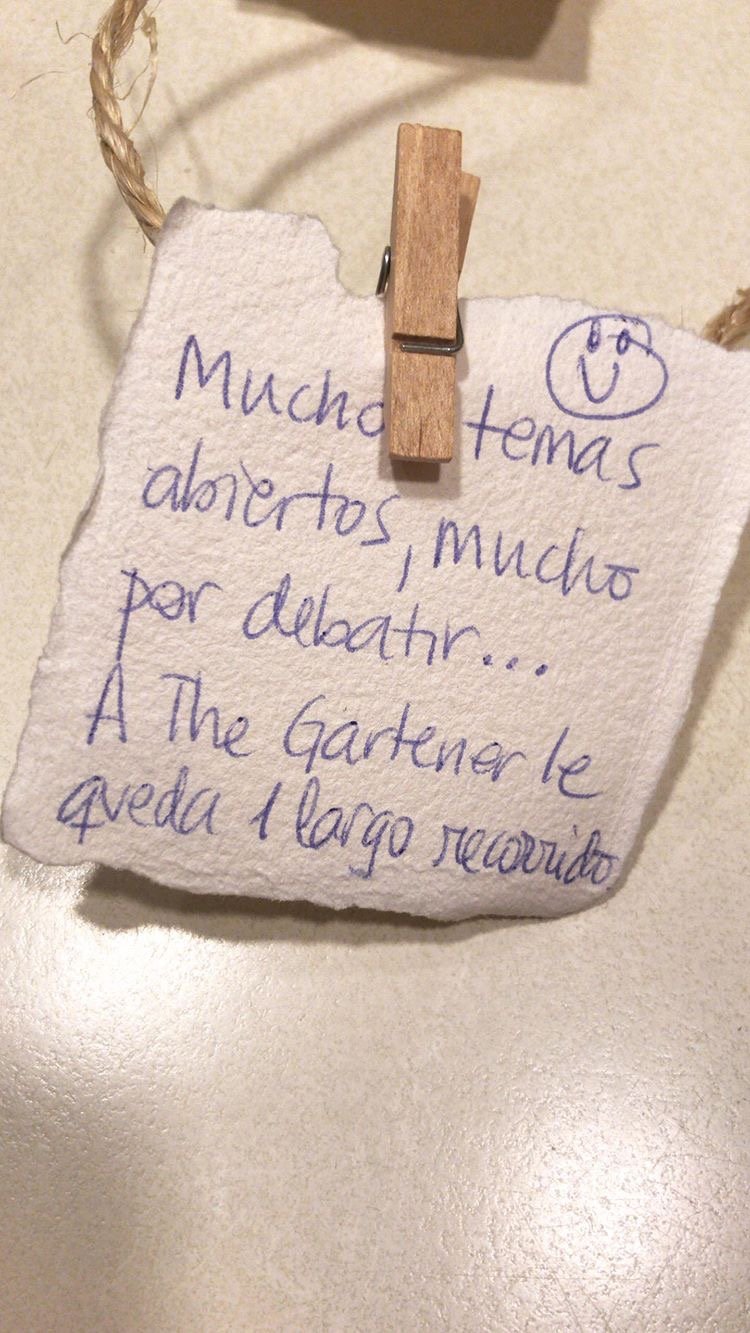 Mucho temas
abiertos, mucho
por debatir...
A The Gartener le
queda 1 largo recorrido.